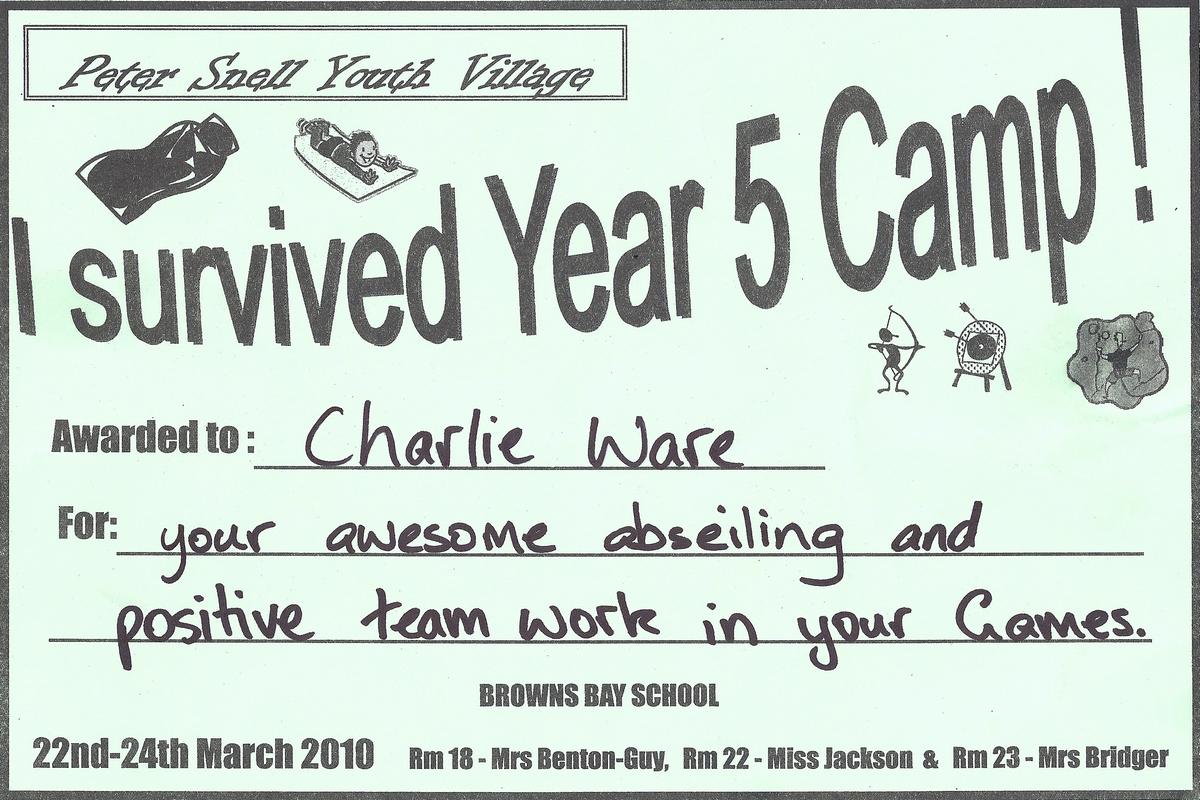 Peter Snell Youth Village
I survived Year 5 Camp !
Awarded to : Charlie Ware
For: your awesome abseiling and
positive team work in your Games.
BROWNS BAY SCHOOL
22nd-24th March 2010 Rm 18 - Mrs Benton-Guy, Rm 22 - Miss Jackson & Rm 23 - Mrs Bridger